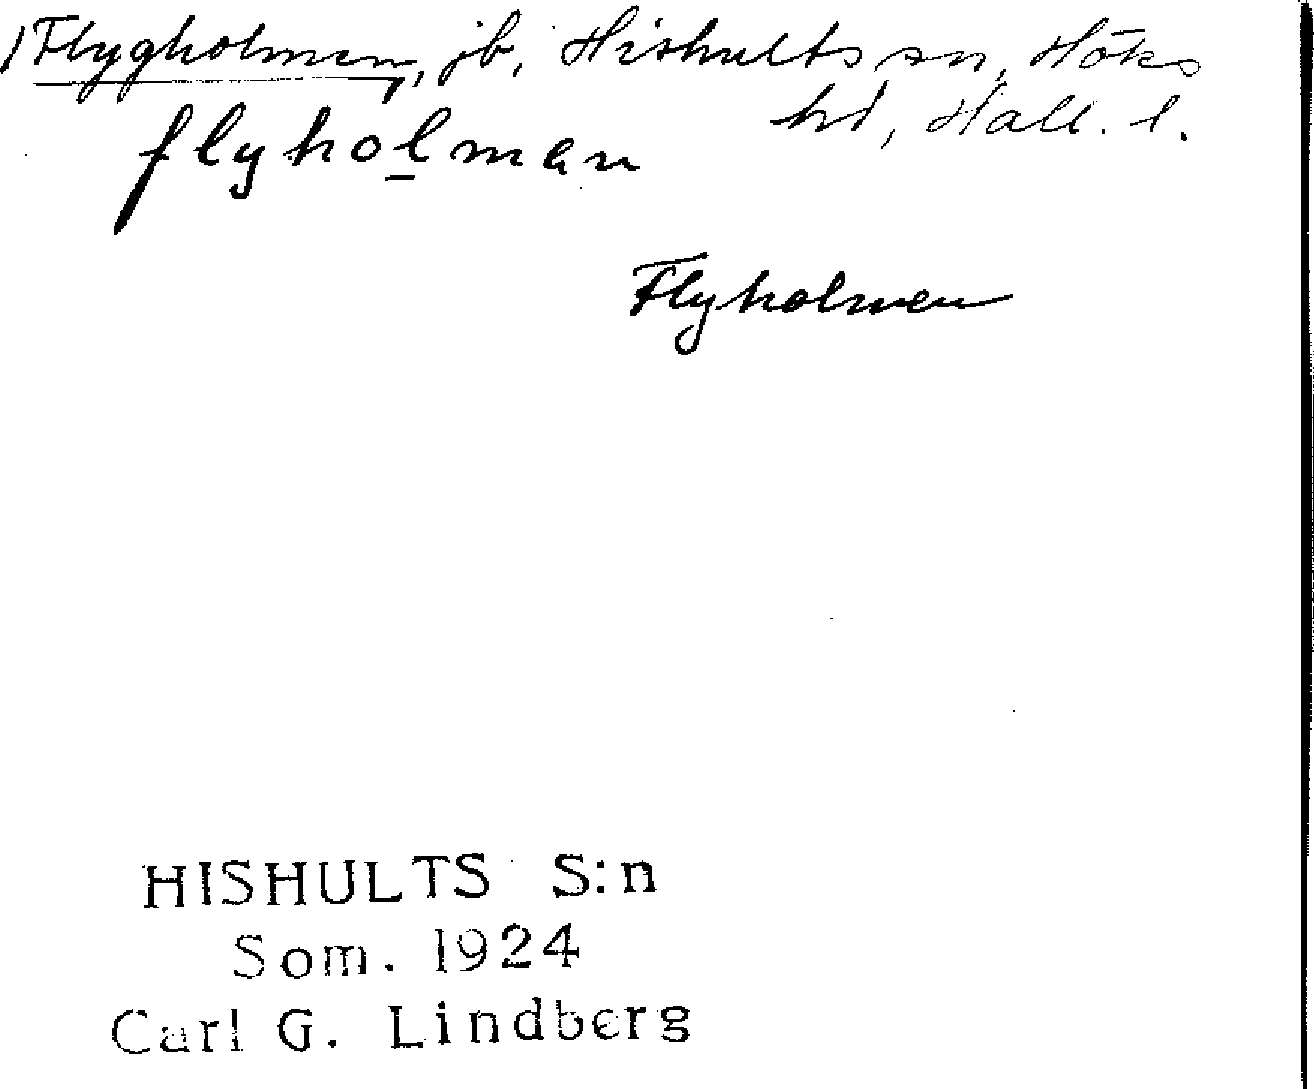 1) Flygholmen, jb, Hishults sn, Höks
hd, Hall. l.
flyholman
Flyholmen
HISHULTS S:n
Som. 1924
Carl G. Lindberg